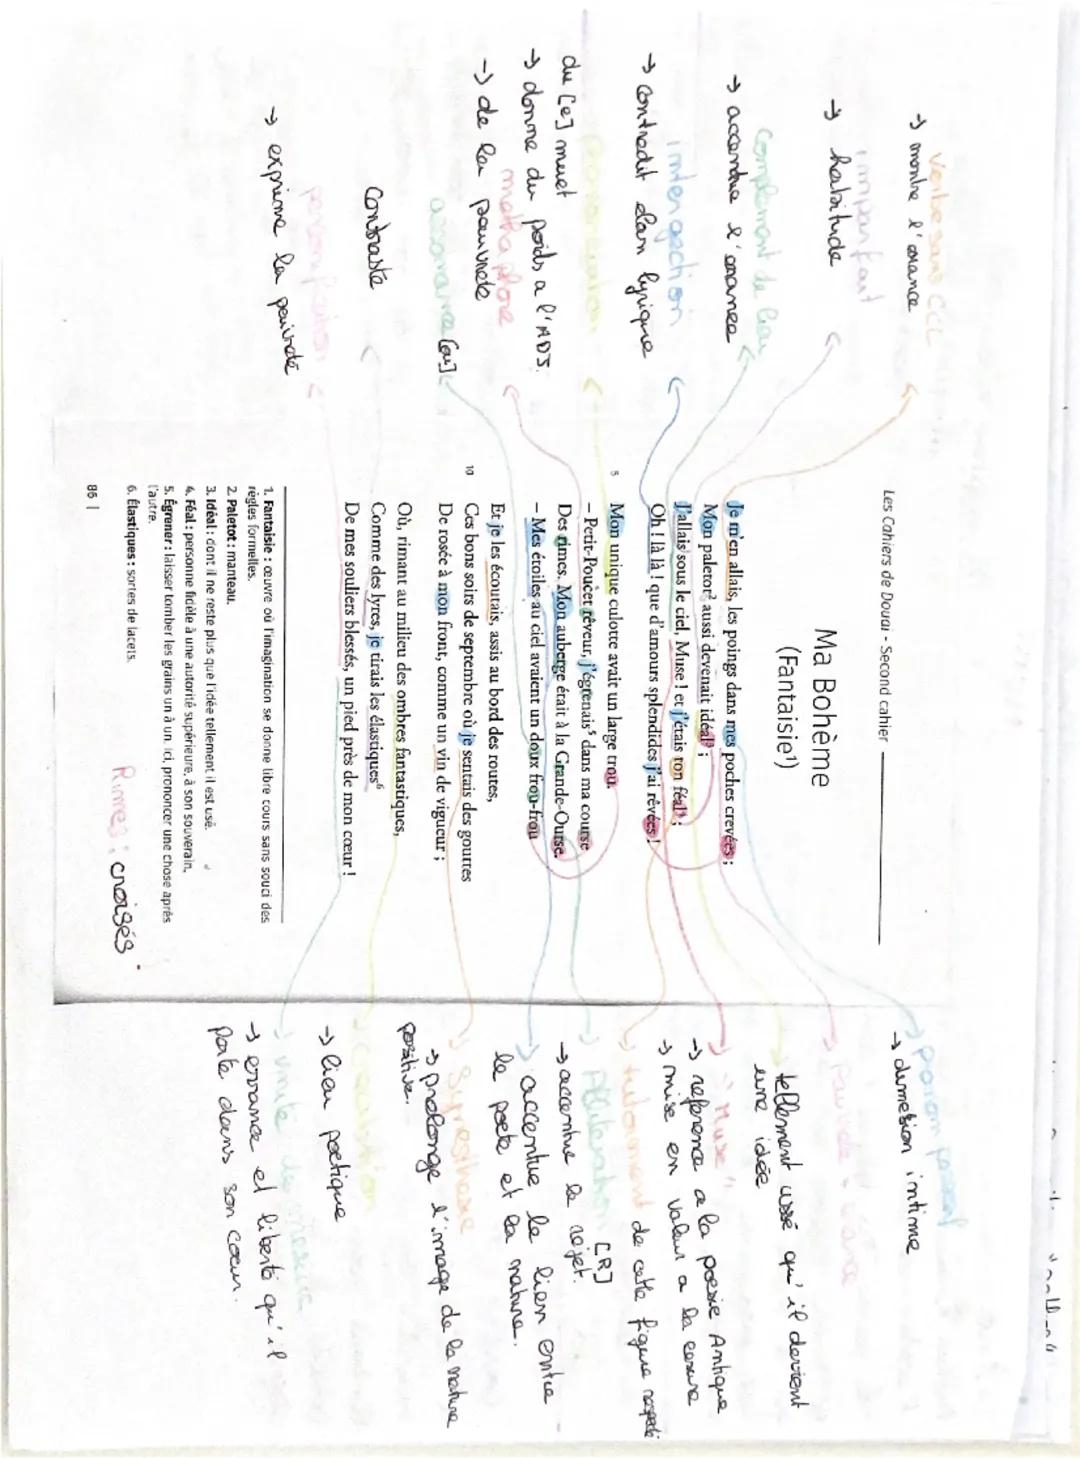 Les Cahiers de Douai - Second cahier
Ma Bohème
(Fantaisie¹)
Je m'en allais, les poings dans mes poches crevées ;
Mon paletot² aussi devenait idéal³ ;
J'allais sous le ciel, Muse ! et j'étais ton féal⁴ ;
Oh ! là là ! que d'amours splendides j'ai rêvées !
5 Mon unique culotte avait un large trou.
– Petit-Poucet rêveur, j'égrenais⁵ dans ma course
Des rimes. Mon auberge était à la Grande-Ourse.
– Mes étoiles au ciel avaient un doux frou-frou
Et je les écoutais, assis au bord des routes,
10 Ces bons soirs de septembre où je sentais des gouttes
De rosée à mon front, comme un vin de vigueur ;
Où, rimant au milieu des ombres fantastiques,
Comme des lyres, je tirais les élastiques⁶
De mes souliers blessés, un pied près de mon cœur !
1. Fantaisie : œuvre où l'imagination se donne libre cours sans souci des
règles formelles.
2. Paletot : manteau.
3. Idéal : dont il ne reste plus que l'idée tellement il est usé.
4. Féal : personne fidèle à une autorité supérieure, à son souverain.
5. Égrener : laisser tomber les grains un à un ici, prononcer une chose après
l'autre.
6. Élastiques : sortes de lacets.
86 |
Rimes : croisés
Verbe sans CCL
→ montre l'errance
imparfait
→ habitude
Complement de lieu
→ accentue l'errance
interjection
→ contredit élan lyrique
du [e] muet
→ donne du poids a l'ADJ.
métaphore
→ de la pauvreté
assonance [ou]
Contraste
personification
→ exprime la pauvreté
→ dimension intime
pauvreté + errance
tellement usé qu'il devient
une idée
"Muse"
→ reference a la poesie Antique
→ mise en valeur a la cesure
de cette figure respecté
Allitération [R]
→ accentue le rejet.
accentue le lien entre
le poete et la nature.
Synesthésie
→ prolonge l'image de la nature
positive.
→ lien poetique
→ errance et liberté qu'il
porte dans son coeur.